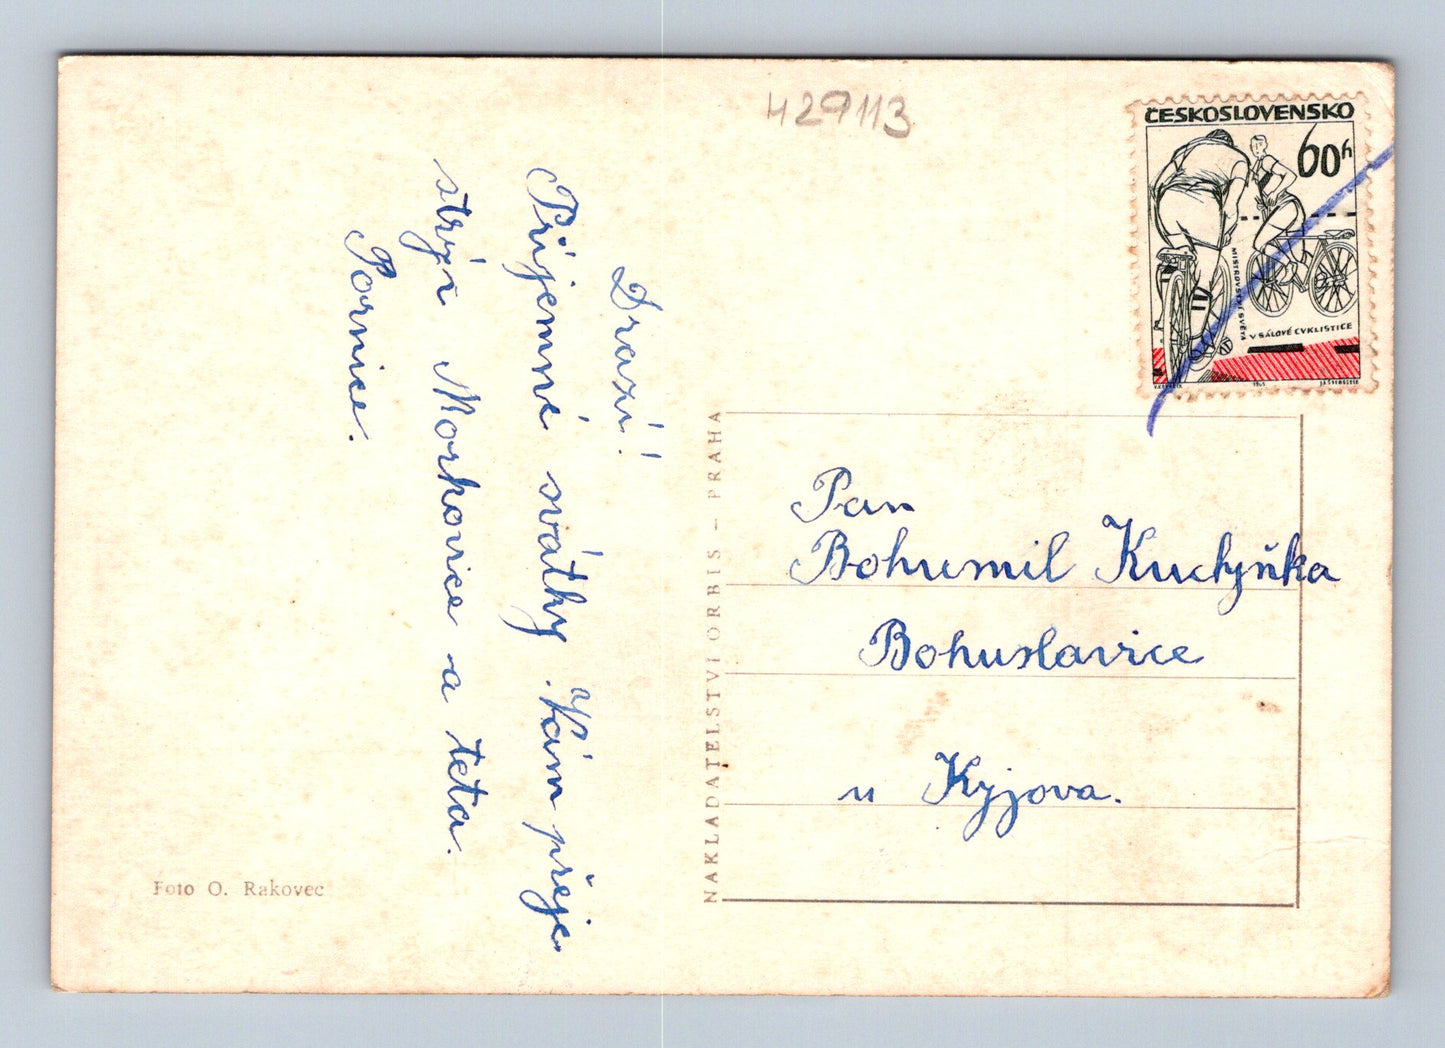 429113
ČESKOSLOVENSKO
60h
MISTROVSTVÍ SVĚTA
V SÁLOVÉ CYKLISTICE
1965
Drazí!
Příjemné svátky
a Vám přeje
strýc Morkovice a teta.
Pornice.
NAKLADATELSTVÍ ORBIS – PRAHA
Pan
Bohumil Kuchyňka
Bohuslavice
u Kyjova.
Foto O. Rakovec